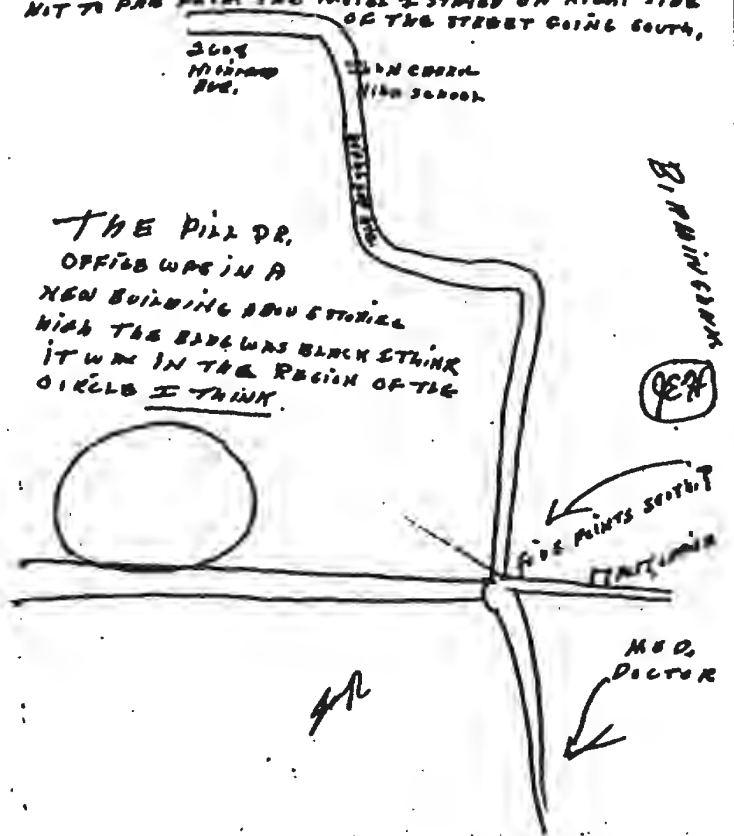 NOT TO FAR FROM THE MOTEL I STAYED ON RIGHT SIDE
OF THE STREET GOING SOUTH,
2608
HIGHLAND
AVE.
HIGH SCHOOL
THE PILL DR.
OFFICE WAS IN A
NEW BUILDING STORIES
HIGH THE BLDG WAS BLACK I THINK
IT WAS IN THE REGION OF THE
CIRCLE I THINK.
BIRMINGHAM
JEH
FIVE POINTS SOUTH?
MED.
DOCTOR